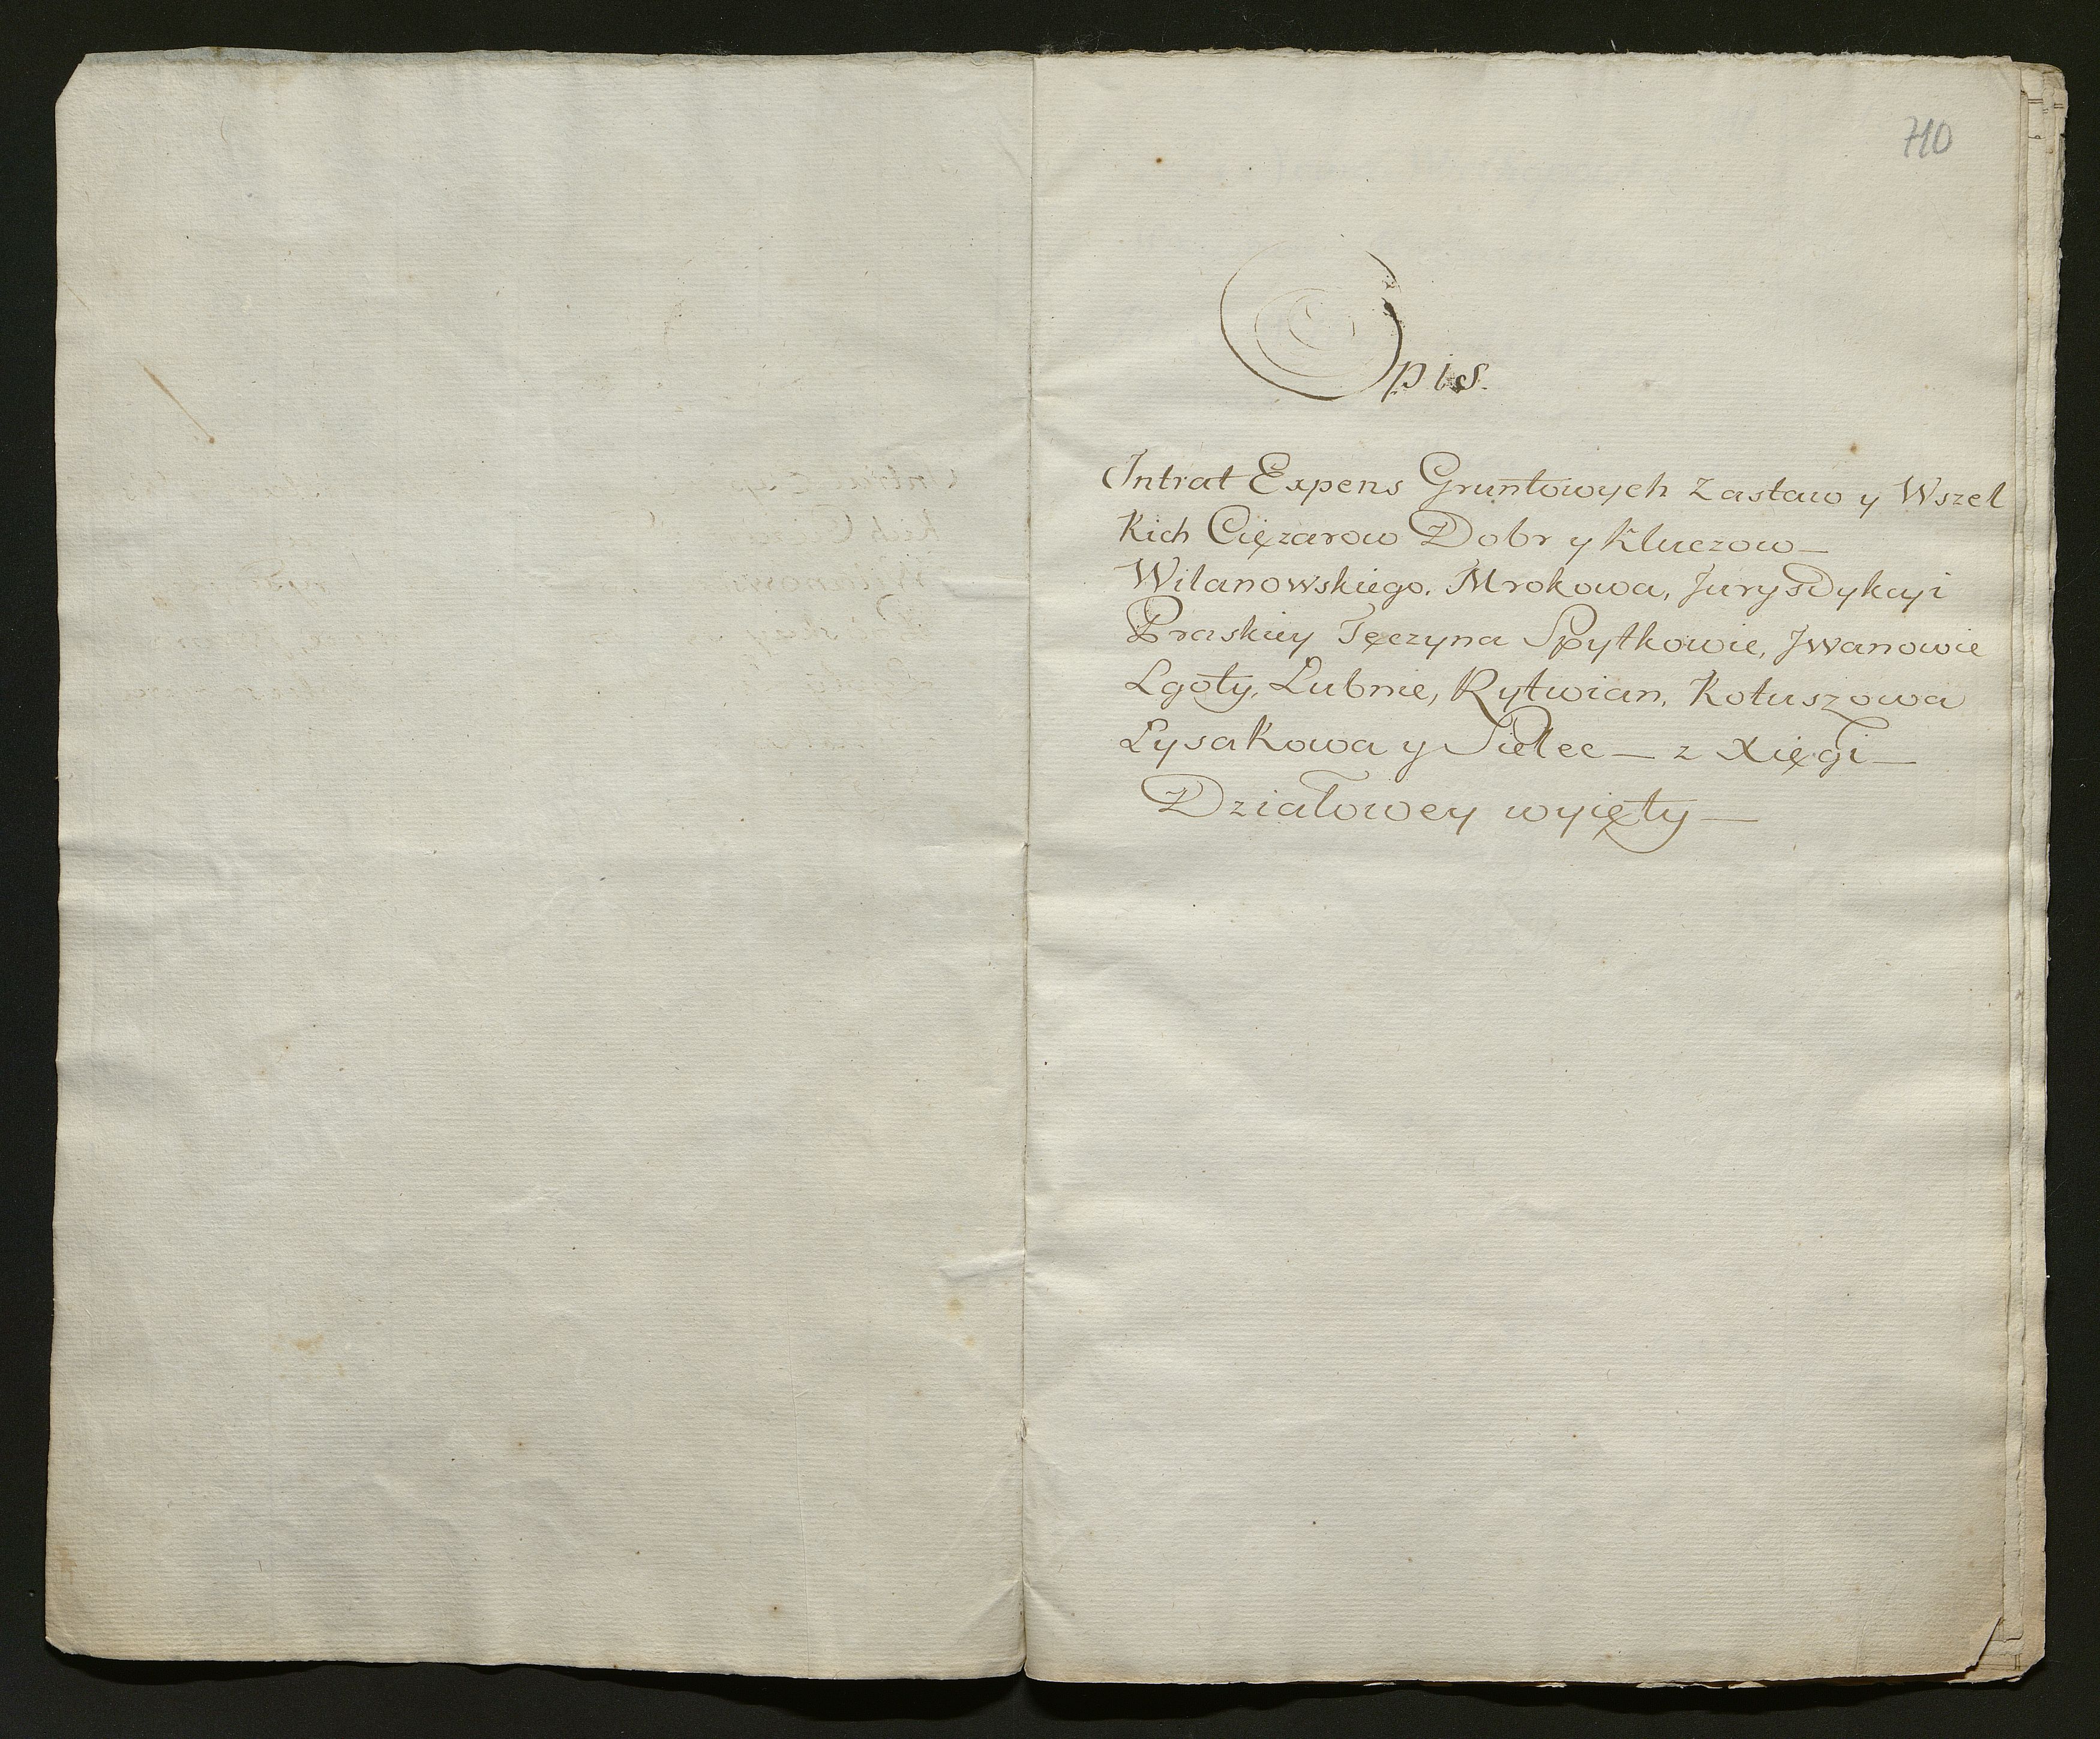 710
Opis.
Intrat Expens Gruntowych Zastaw y Wszel
kich Ciężarow Dobr y Kluczow—
Wilanowskiego. Mrokowa, Jurysdykcyi
Praskiey Tęczyna Spytkowic, Jwanowic
Lgoty, Lubnic, Rytwian, Kotuszowa
Łysakowa y Sielec— z Xięgi—
Działowey wyięty—